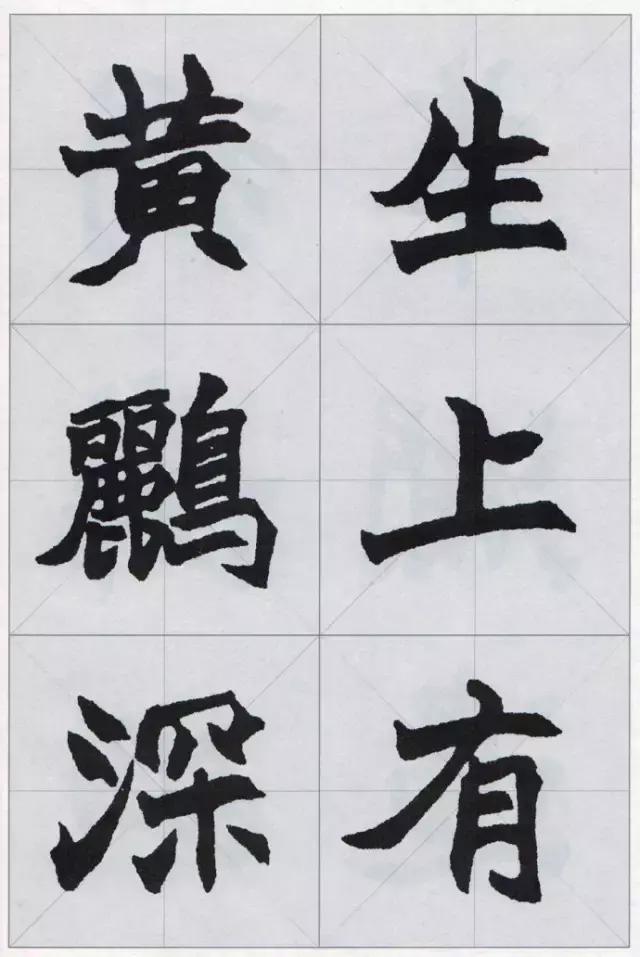 生上有
黄鸝深